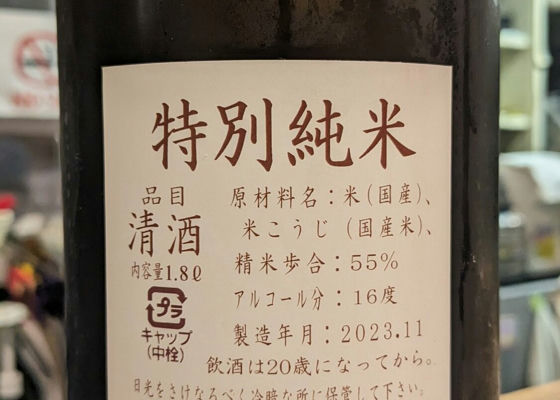 特別純米
品目
清酒
内容量1.8ℓ
プラ
キャップ
(中栓)
原材料名：米(国産)、
米こうじ(国産米)、
精米歩合：55%
アルコール分：16度
製造年月：2023.11
飲酒は20歳になってから。
日光をさけなるべく冷暗な所に保管して下さい。